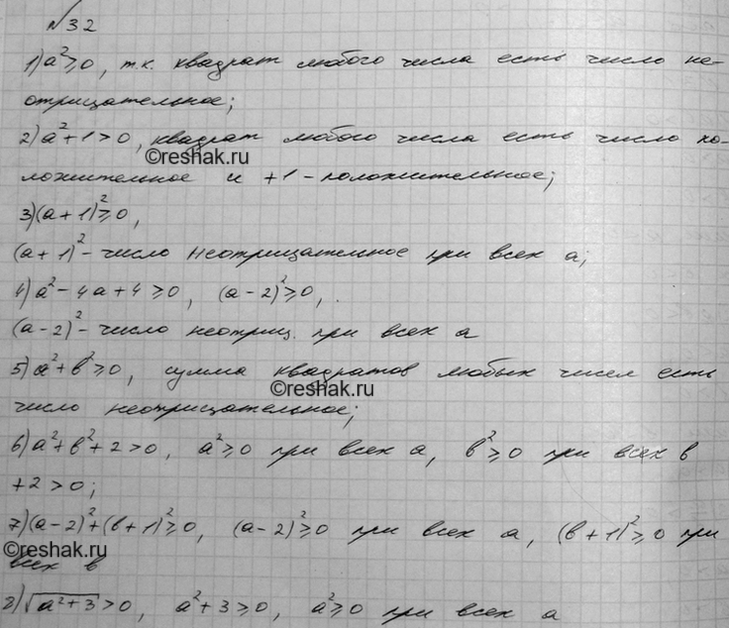 №32
1) a²≥0, т.к. квадрат любого числа есть число не-
отрицательное;
2) a²+1>0, квадрат любого числа есть число по-
©reshak.ru
ложительное и +1 - положительное;
3) (a+1)²≥0,
(a+1)² - число неотрицательное при всех a;
4) a²-4a+4≥0, (a-2)²≥0,
(a-2)² - число неотриц. при всех a
5) a²+b²≥0, сумма квадратов любых чисел есть
©reshak.ru
число неотрицательное;
6) a²+b²+2>0, a²≥0 при всех a, b²≥0 при всех b
+2>0;
7) (a-2)²+(b+1)²≥0, (a-2)²≥0 при всех a, (b+1)²≥0 при
©reshak.ru
всех b
8) √(a²+3)>0, a²+3≥0, a²≥0 при всех a